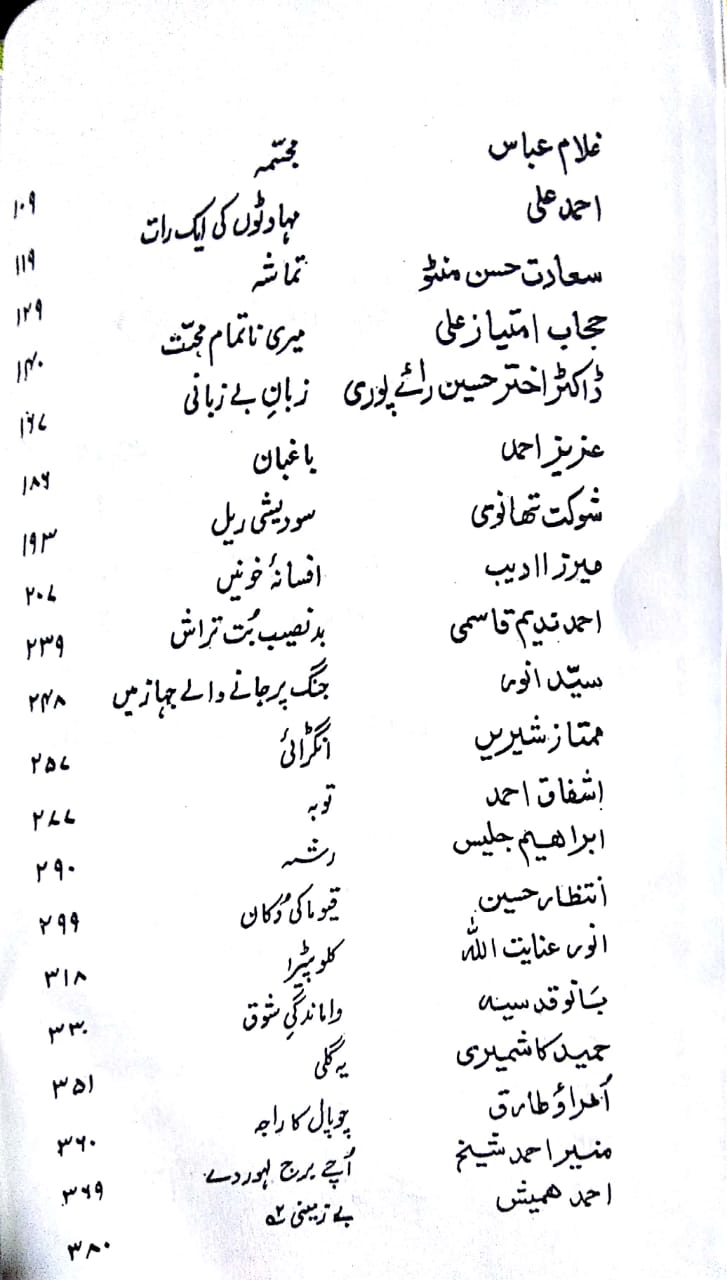 غلام عباس مجسّمہ ۱۰۹
احمد علی مہاوٹوں کی ایک رات ۱۱۹
سعادت حسن منٹو تماشہ ۱۲۹
حجاب امتیاز علی میری ناتمام محبّت ۱۴۰
ڈاکٹر اختر حسین رائے پوری زبانِ بے زبانی ۱۶۷
عزیز احمد باغبان ۱۸۶
شوکت تھانوی سودیشی ریل ۱۹۳
میرزا ادیب افسانۂ خونیں ۲۰۷
احمد ندیم قاسمی بدنصیب بُت تراش ۲۳۹
سیّد انور جنگ پر جانے والے جہاز میں ۲۴۸
ممتاز شیریں انگڑائی ۲۵۷
اشفاق احمد توبہ ۲۷۷
ابراھیم جلیس رشہ ۲۹۰
انتظار حسین قیوما کی دُکان ۲۹۹
انور عنایت اللہ کلوپیٹرا ۳۱۸
بانو قدسیہ واماندگیِ شوق ۳۳۰
حمید کاشمیری یہ گلی ۳۵۱
اُمراؤ طارق چوپال کا راجہ ۳۶۰
منیر احمد شیخ اُچے برج لہور دے ۳۶۹
احمد ھمیش بے زمینی ۳۸۰